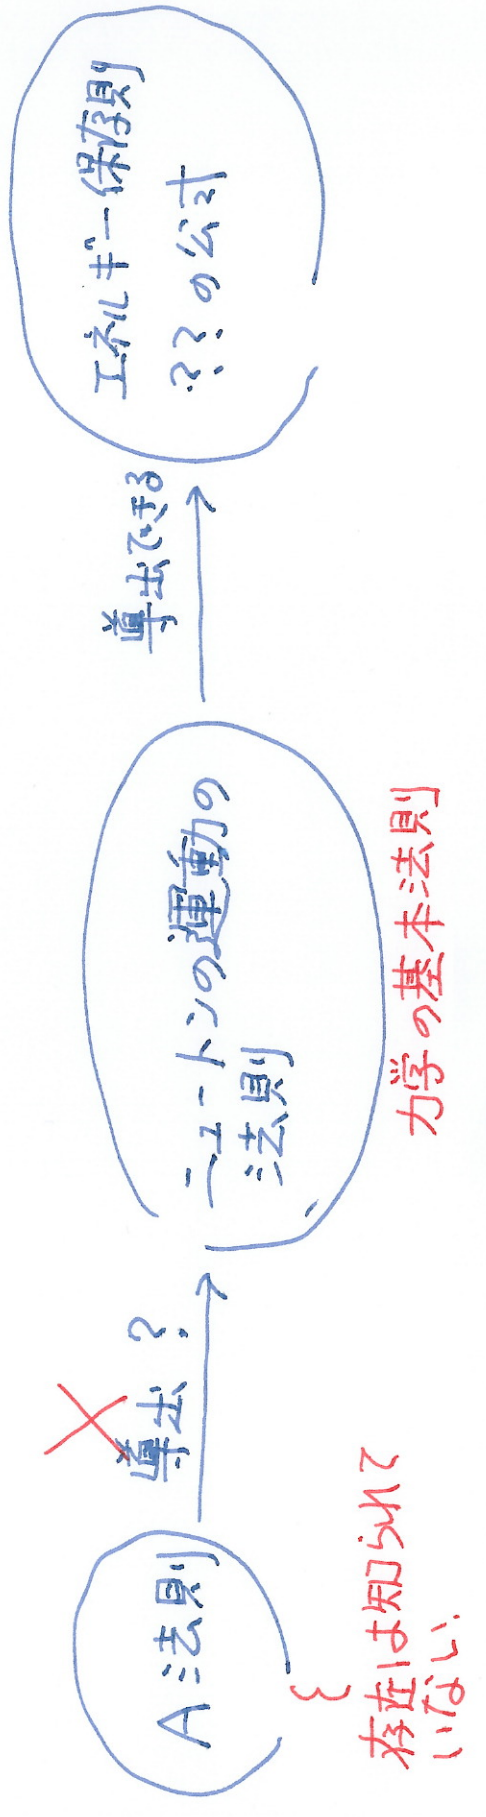 A 法則
存在は知られて
いない.
導出?
ニュートンの運動の
法則
力学の基本法則
導出できる
エネルギー保存則
??の公式